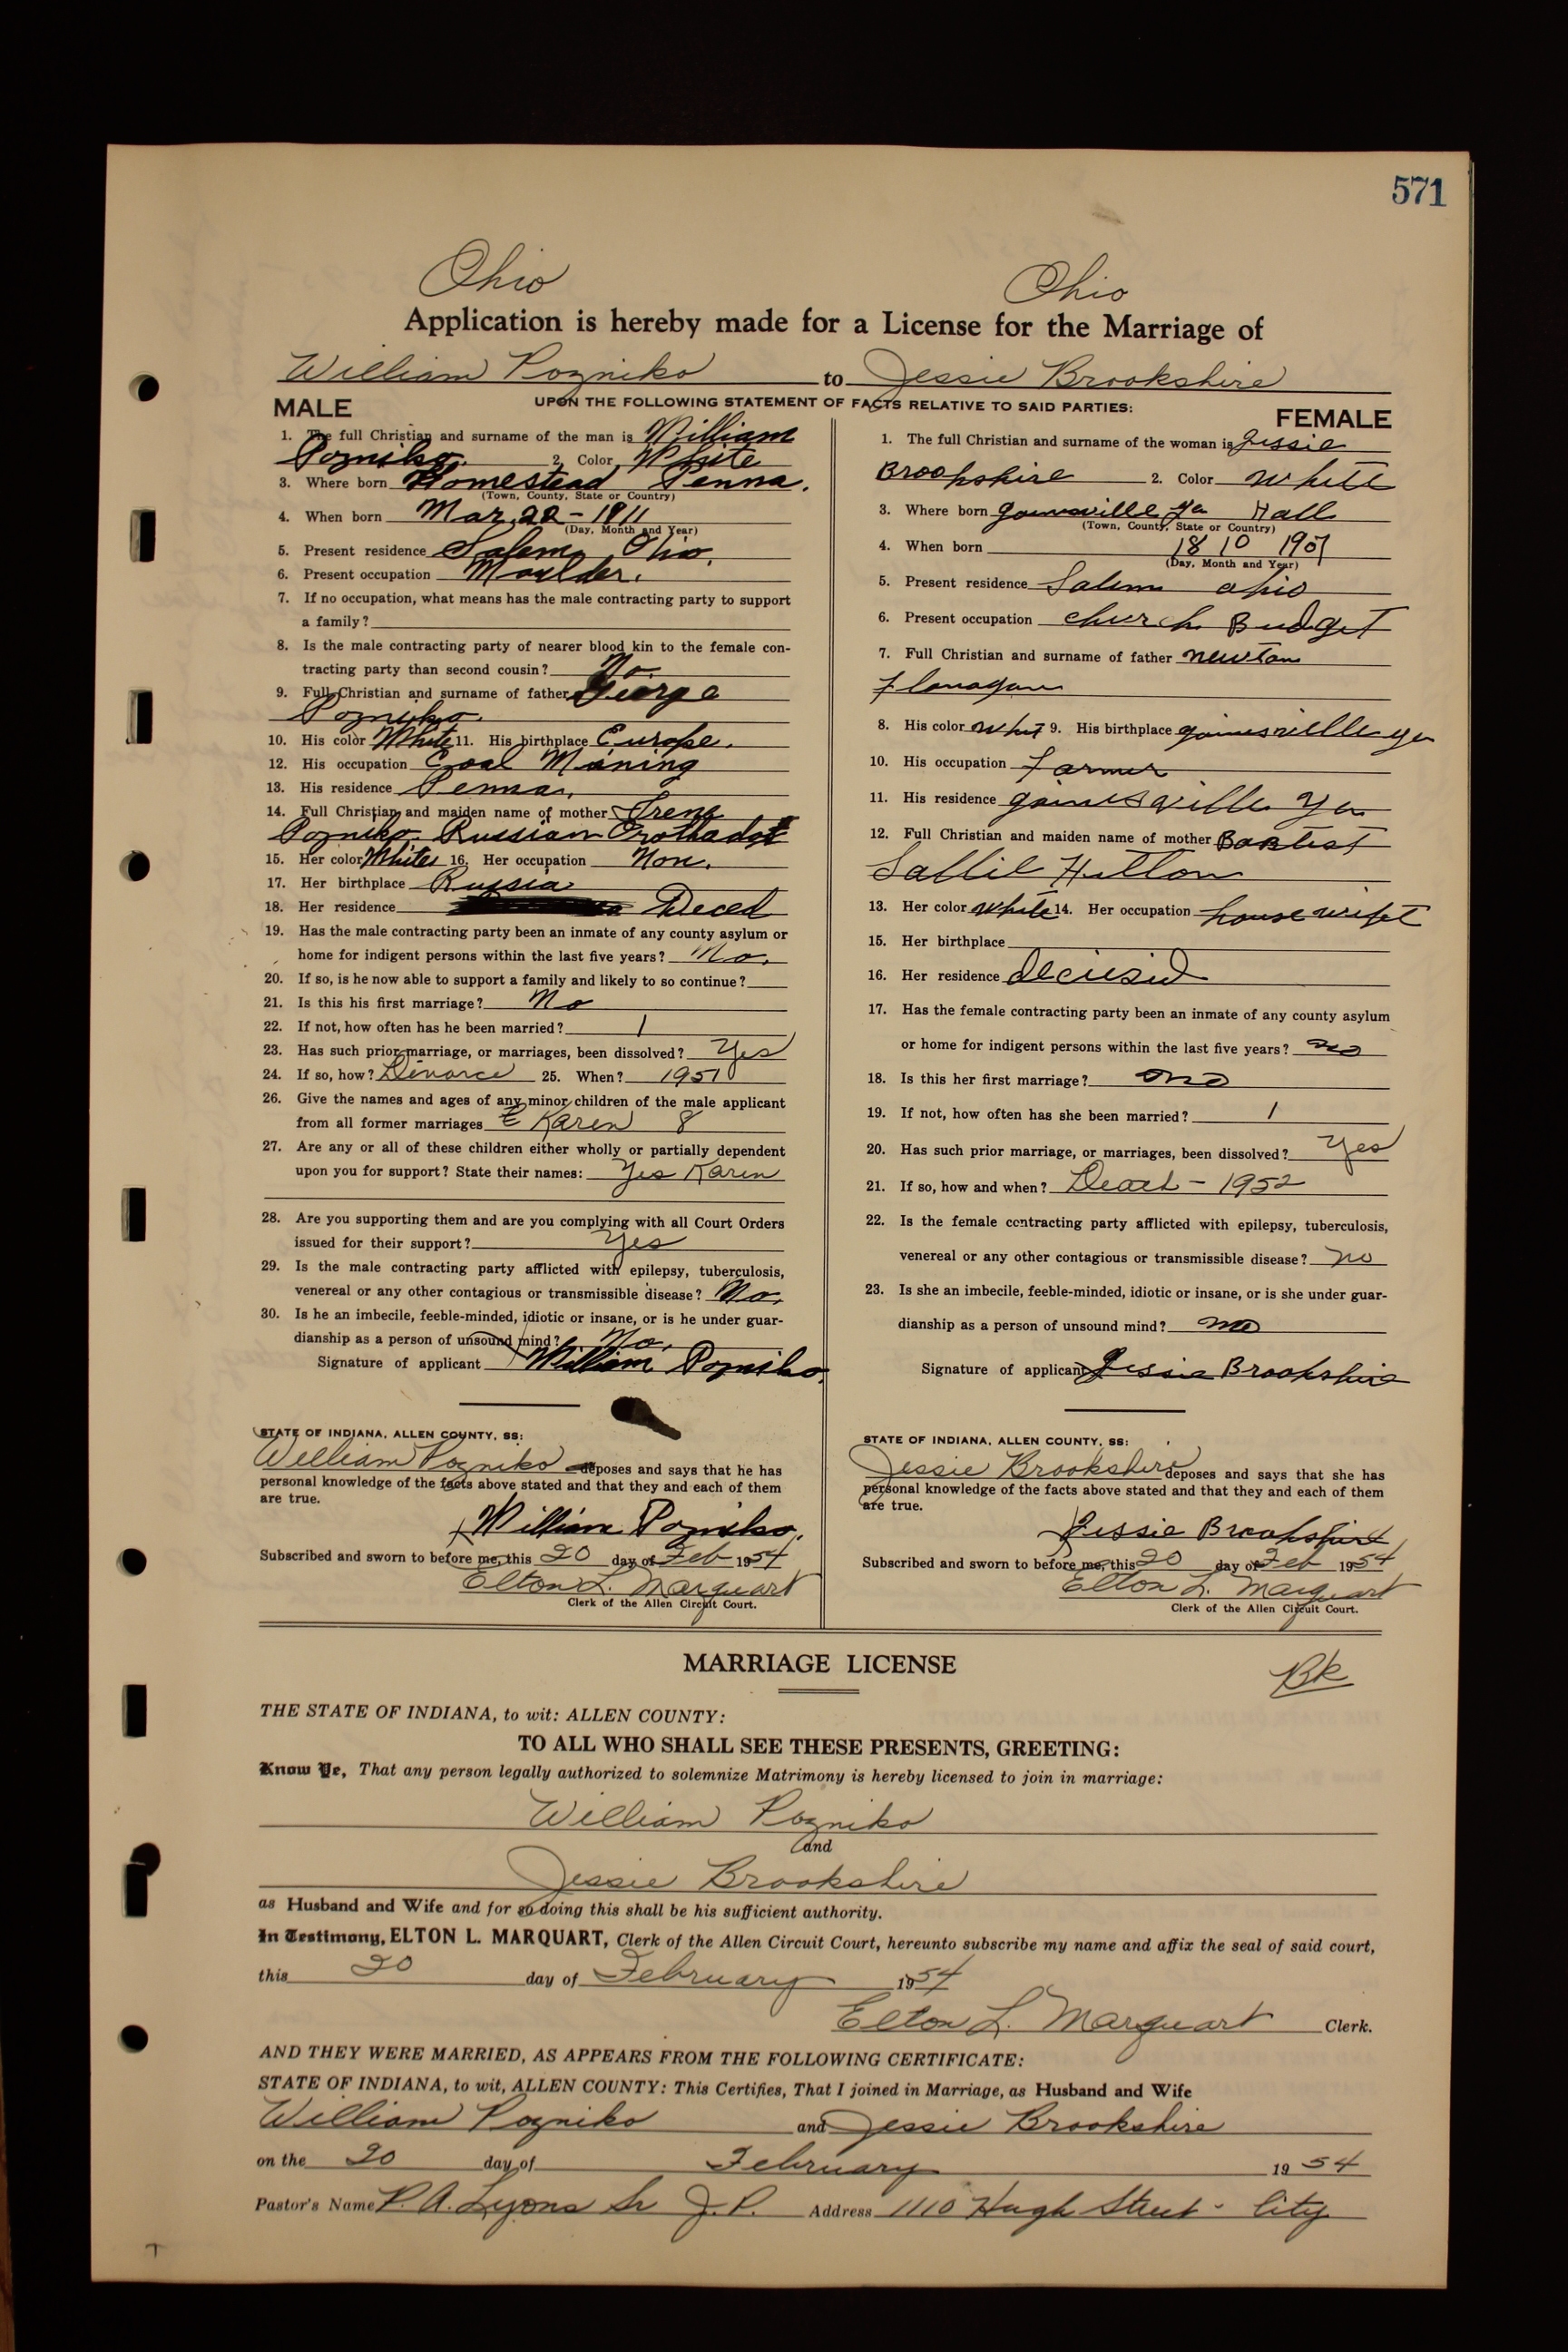 571
Ohio Ohio
Application is hereby made for a License for the Marriage of
William Pozniko to Jessie Brookshire
UPON THE FOLLOWING STATEMENT OF FACTS RELATIVE TO SAID PARTIES:
MALE
1. The full Christian and surname of the man is William
Pozniko. 2. Color White
3. Where born Homestead Penna.
(Town, County, State or Country)
4. When born Mar. 22 - 1911
(Day, Month and Year)
5. Present residence Salem, Ohio.
6. Present occupation Moulder.
7. If no occupation, what means has the male contracting party to support
a family?
8. Is the male contracting party of nearer blood kin to the female con-
tracting party than second cousin? No.
9. Full Christian and surname of father George
Pozniko.
10. His color White 11. His birthplace Europe.
12. His occupation Coal Mining
13. His residence Penna.
14. Full Christian and maiden name of mother Irene
Pozniko. Russian Orothadot
15. Her color White 16. Her occupation Non.
17. Her birthplace Russia
18. Her residence Deced
19. Has the male contracting party been an inmate of any county asylum or
home for indigent persons within the last five years? No.
20. If so, is he now able to support a family and likely to so continue?
21. Is this his first marriage? No
22. If not, how often has he been married? 1
23. Has such prior marriage, or marriages, been dissolved? Yes
24. If so, how? Divorce 25. When? 1951
26. Give the names and ages of any minor children of the male applicant
from all former marriages Karen 8
27. Are any or all of these children either wholly or partially dependent
upon you for support? State their names: Yes Karen
28. Are you supporting them and are you complying with all Court Orders
issued for their support? Yes
29. Is the male contracting party afflicted with epilepsy, tuberculosis,
venereal or any other contagious or transmissible disease? No.
30. Is he an imbecile, feeble-minded, idiotic or insane, or is he under guar-
dianship as a person of unsound mind? No.
Signature of applicant William Pozniko.
STATE OF INDIANA, ALLEN COUNTY, SS:
William Pozniko deposes and says that he has
personal knowledge of the facts above stated and that they and each of them
are true.
x William Pozniko.
Subscribed and sworn to before me, this 20 day of Feb 1954
Elton L. Marquart
Clerk of the Allen Circuit Court.
FEMALE
1. The full Christian and surname of the woman is Jessie
Brookshire 2. Color White
3. Where born gainsville ga Hall
(Town, County, State or Country)
4. When born 18 10 1907
(Day, Month and Year)
5. Present residence Salem ohio
6. Present occupation church Budget
7. Full Christian and surname of father newton
Flanagan
8. His color whit 9. His birthplace gainesville ga
10. His occupation Farmer
11. His residence gainesville ga
12. Full Christian and maiden name of mother Babtist
Sallie Hulton
13. Her color white 14. Her occupation housewife
15. Her birthplace
16. Her residence deciesid
17. Has the female contracting party been an inmate of any county asylum
or home for indigent persons within the last five years? no
18. Is this her first marriage? no
19. If not, how often has she been married? 1
20. Has such prior marriage, or marriages, been dissolved? Yes
21. If so, how and when? Death - 1952
22. Is the female contracting party afflicted with epilepsy, tuberculosis,
venereal or any other contagious or transmissible disease? no
23. Is she an imbecile, feeble-minded, idiotic or insane, or is she under guar-
dianship as a person of unsound mind? no
Signature of applicant Jessie Brookshire
STATE OF INDIANA, ALLEN COUNTY, SS:
Jessie Brookshire deposes and says that she has
personal knowledge of the facts above stated and that they and each of them
are true.
x Jessie Brookshire
Subscribed and sworn to before me, this 20 day of Feb 1954
Elton L. Marquart
Clerk of the Allen Circuit Court.
MARRIAGE LICENSE
BK
THE STATE OF INDIANA, to wit: ALLEN COUNTY:
TO ALL WHO SHALL SEE THESE PRESENTS, GREETING:
Know Ye, That any person legally authorized to solemnize Matrimony is hereby licensed to join in marriage:
William Pozniko
and
Jessie Brookshire
as Husband and Wife and for so doing this shall be his sufficient authority.
In Testimony, ELTON L. MARQUART, Clerk of the Allen Circuit Court, hereunto subscribe my name and affix the seal of said court,
this 20 day of February 1954
Elton L. Marquart Clerk.
AND THEY WERE MARRIED, AS APPEARS FROM THE FOLLOWING CERTIFICATE:
STATE OF INDIANA, to wit, ALLEN COUNTY: This Certifies, That I joined in Marriage, as Husband and Wife
William Pozniko and Jessie Brookshire
on the 20 day of February 1954
Pastor's Name P. A. Lyons Sr J. P. Address 1110 Hugh Street - City